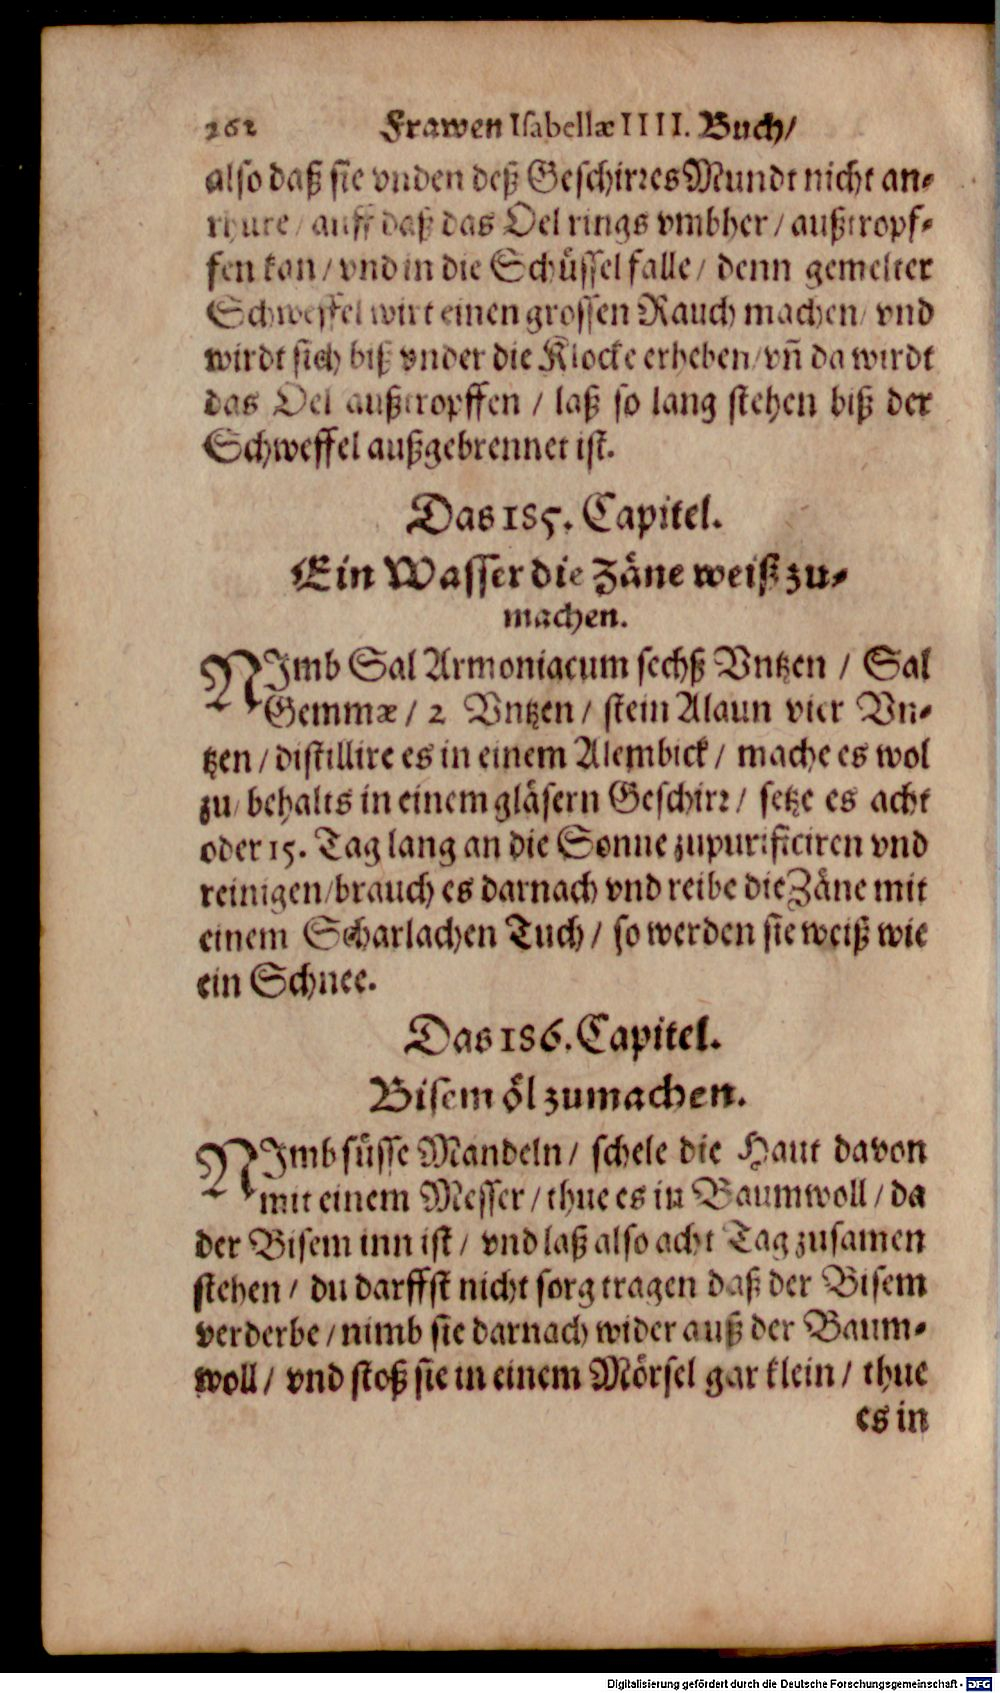 262 Frawen Isabellæ IIII. Buch/
also daß sie vnden deß Geschirres Mundt nicht an-
rhure/ auff daß das Oel rings vmbher/ außtropf-
fen kan/ vnd in die Schüssel falle/ denn gemelter
Schweffel wirt einen grossen Rauch machen/ vnd
wirdt sich biß vnder die Klocke erheben/ vñ da wirdt
das Oel außtropffen/ laß so lang stehen biß der
Schweffel außgebrennet ist.
Das 185. Capitel.
Ein Wasser die Zäne weiß zu-
machen.
NImb Sal Armoniacum sechß Vntzen/ Sal
Gemmæ/ 2 Vntzen/ stein Alaun vier Vn-
tzen/ distillire es in einem Alembick/ mache es wol
zu/ behalts in einem gläsern Geschirr/ setze es acht
oder 15. Tag lang an die Sonne zupurificiren vnd
reinigen/ brauch es darnach vnd reibe die Zäne mit
einem Scharlachen Tuch/ so werden sie weiß wie
ein Schnee.
Das 186. Capitel.
Bisem öl zumachen.
NImb süsse Mandeln/ schele die Haut davon
mit einem Messer/ thue es in Baumwoll/ da
der Bisem inn ist/ vnd laß also acht Tag zusamen
stehen/ du darffst nicht sorg tragen daß der Bisem
verderbe/ nimb sie darnach wider auß der Baum-
woll/ vnd stoß sie in einem Mörsel gar klein/ thue
es in
Digitalisierung gefördert durch die Deutsche Forschungsgemeinschaft - DFG